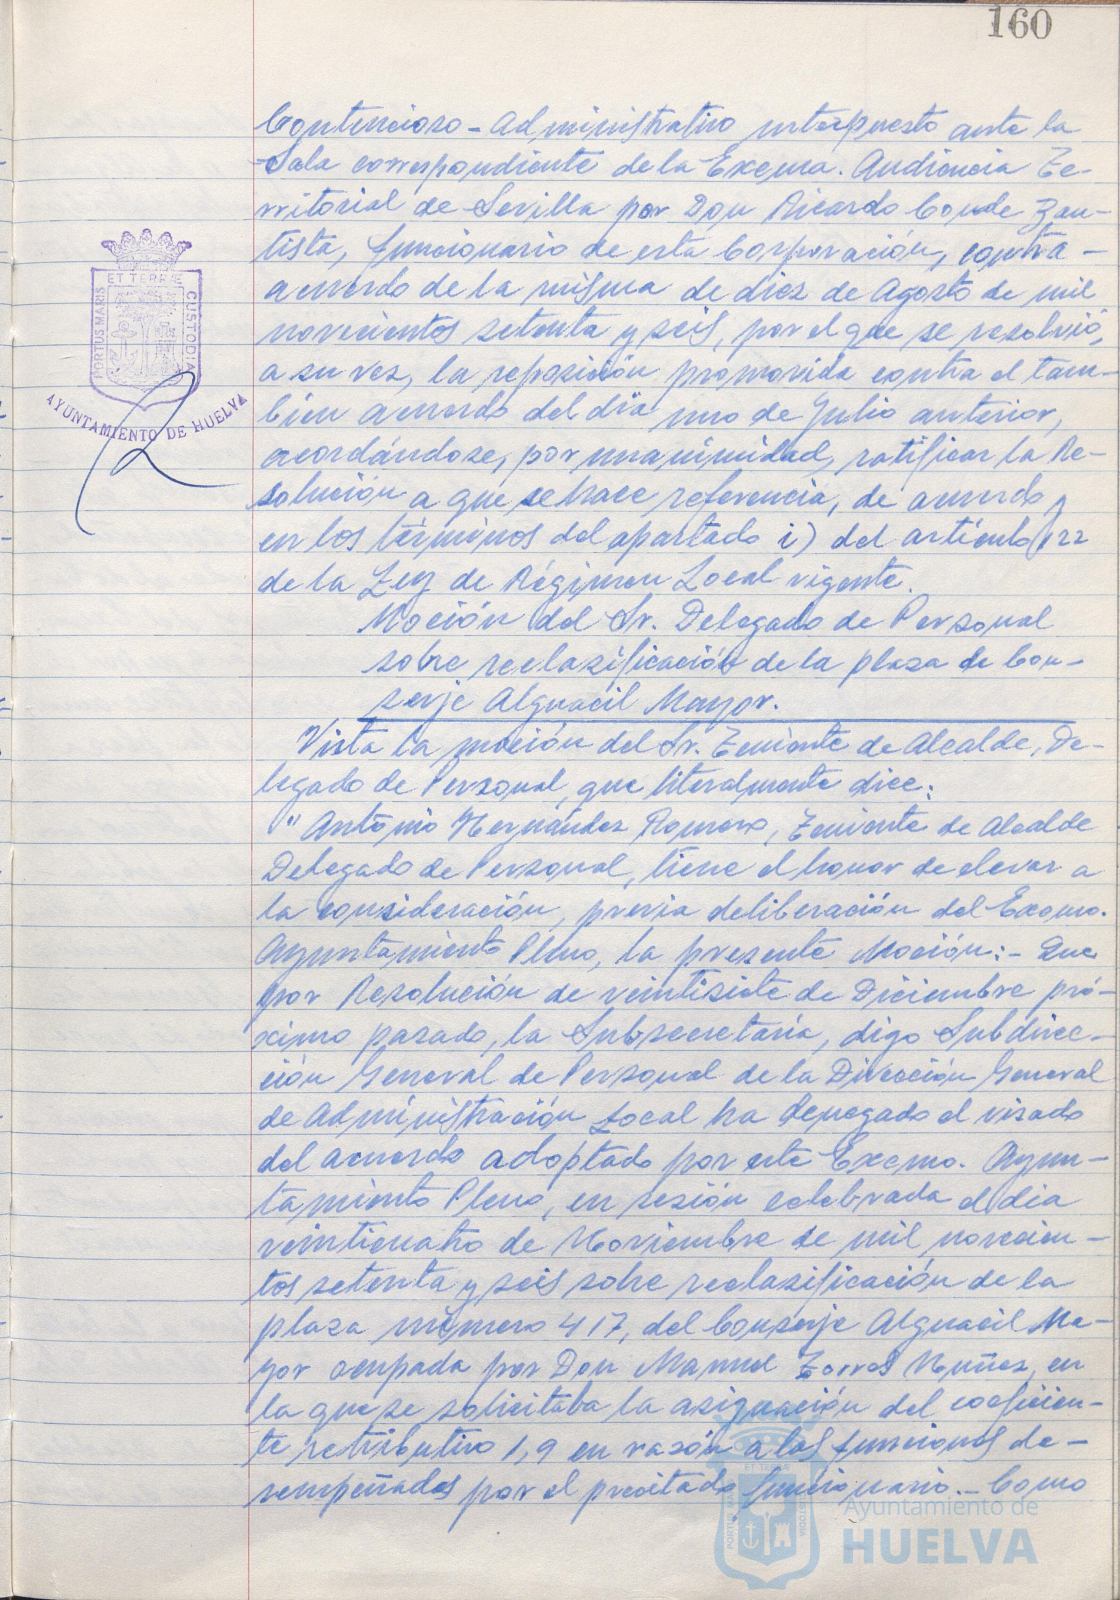 160
Contencioso-Administrativo interpuesto ante la
Sala correspondiente de la Excma. Audiencia Te-
rritorial de Sevilla por Don Ricardo Conde Zan-
tista, funcionario de esta Corporación, contra
acuerdo de la misma de diez de Agosto de mil
novecientos setenta y seis, por el que se resolvió,
a su vez, la reposición promovida contra el tam-
bién acuerdo del día uno de Julio anterior,
acordándose, por unanimidad, ratificar la Re-
solución a que se hace referencia, de acuerdo
en los términos del apartado i) del artículo 122
de la Ley de Régimen Local vigente.
Moción del Sr. Delegado de Personal
sobre reclasificación de la plaza de Con-
serje Alguacil Mayor.
Vista la moción del Sr. Teniente de Alcalde, De-
legado de Personal, que literalmente dice:
"Antonio Hernández Romero, Teniente de Alcalde
Delegado de Personal, tiene el honor de elevar a
la consideración, previa deliberación del Excmo.
Ayuntamiento Pleno, la presente Moción:- Que
por Resolución de veintisiete de Diciembre pró-
ximo pasado, la Subsecretaría, digo Subdirec-
ción General de Personal de la Dirección General
de Administración Local ha denegado el visado
del acuerdo adoptado por este Excmo. Ayun-
tamiento Pleno, en sesión celebrada el día
veinticuatro de Noviembre de mil novecien-
tos setenta y seis sobre reclasificación de la
plaza número 417, del Conserje Alguacil Ma-
yor ocupada por Don Manuel Torres Nuñez, en
la que se solicitaba la asignación del coeficien-
te retributivo 1,9 en razón a las funciones de-
sempeñadas por el precitado funcionario.- Como
PORTUS MARIS ET TERRÆ CUSTODIA
AYUNTAMIENTO DE HUELVA
PORTUS MARIS ET TERRÆ CUSTODIA
Ayuntamiento de
HUELVA